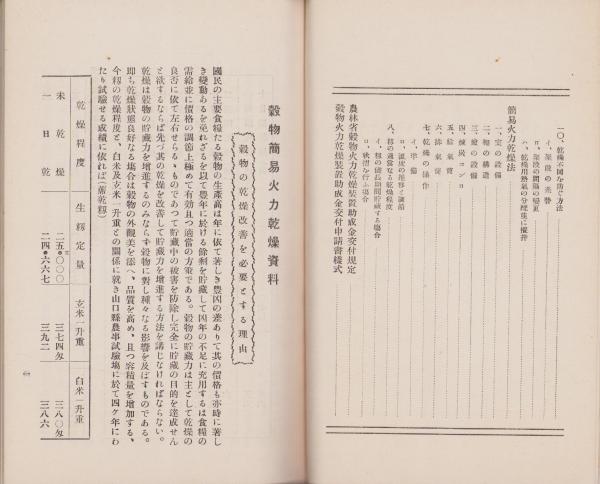 一〇、乾燥の固め防ぐ方法
イ、架段の差替
ロ、架段の間隔の變更
ハ、乾燥用熱氣の分離並に攪拌
簡易火力乾燥法
一、室の設備
二、棚の構造
三、爐の設備
四、煉炭コンロ
五、給氣筒
六、排氣筒
七、乾燥の操作
イ、準備
ロ、溫度の推移と調節
八、籾の適當なる乾燥程度
イ、籾の儘長期間貯藏する場合
ロ、秋摺を行ふ場合
農林省穀物火力乾燥裝置助成金交付規定
穀物火力乾燥裝置助成金交付申請書樣式
穀物簡易火力乾燥資料
穀物の乾燥改善を必要とする理由
國民の主要食糧たる穀物の生產高は年に依て著しき豊凶の差ありて其の價格も亦時に著し
き變動あるを免れざるを以て豊年に於ける餘剩を貯藏して凶年の不足に充用するは食糧の
需給並に價格の調節上極めて有効且つ適當の方策である。穀物の貯藏力は主として乾燥の
良否に依て左右せらるゝものであつて貯藏中の被害を防除し完全に貯藏の目的を達成せん
と欲するならば先づ其の乾燥を改善して貯藏力を增進する方法を講じなければならない。
乾燥は穀物の貯藏力を增進するのみならず穀物に對し種々なる影響を及ぼすものである。
即ち乾燥狀態良好なる場合は穀物の外觀美を添へ、品質を高め、且つ容積量を增加する、
今籾の乾燥程度と、白米及玄米一升重との關係に就き山口縣農事試驗塲に於て四ケ年にわ
たり試驗せる成績に依れば(蓆乾籾)
乾燥程度 生籾定量 玄米一升重 白米一升重
未乾燥 二五・〇〇〇 三七四匁 三八〇匁
一日乾 二四・六六七 三九二 三八六